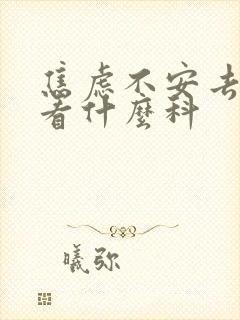 焦虑不安去
看什麼科
曦弥